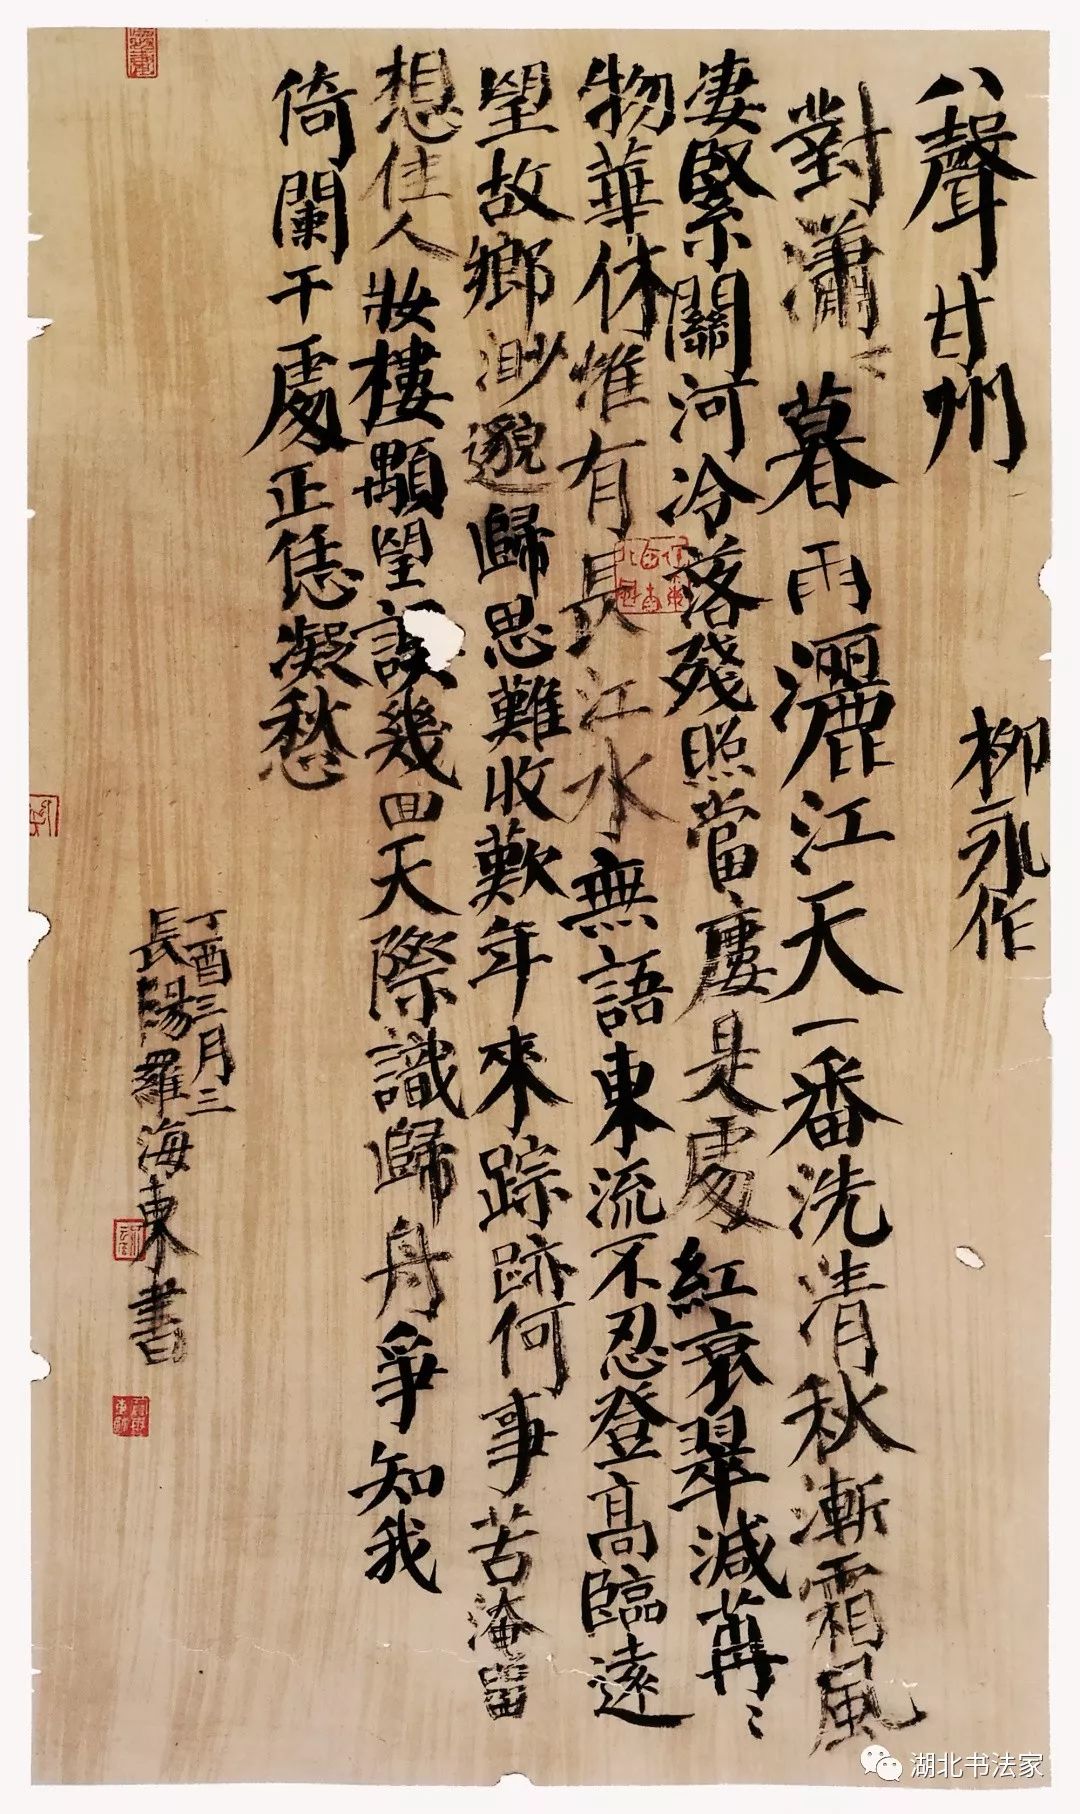 八聲甘州
柳永作
對瀟〻暮雨灑江天一番洗清秋漸霜風
凄緊關河冷落殘照當廔是處紅衰翠減苒〻
物華休惟有長江水無語東流不忍登高臨遠
望故鄉渺邈歸思難收歎年來踪跡何事苦淹留
想佳人妝樓顒望誤幾回天際識歸舟爭知我
倚闌干處正恁凝愁
丁酉三月三
長陽羅海東書
湖北书法家